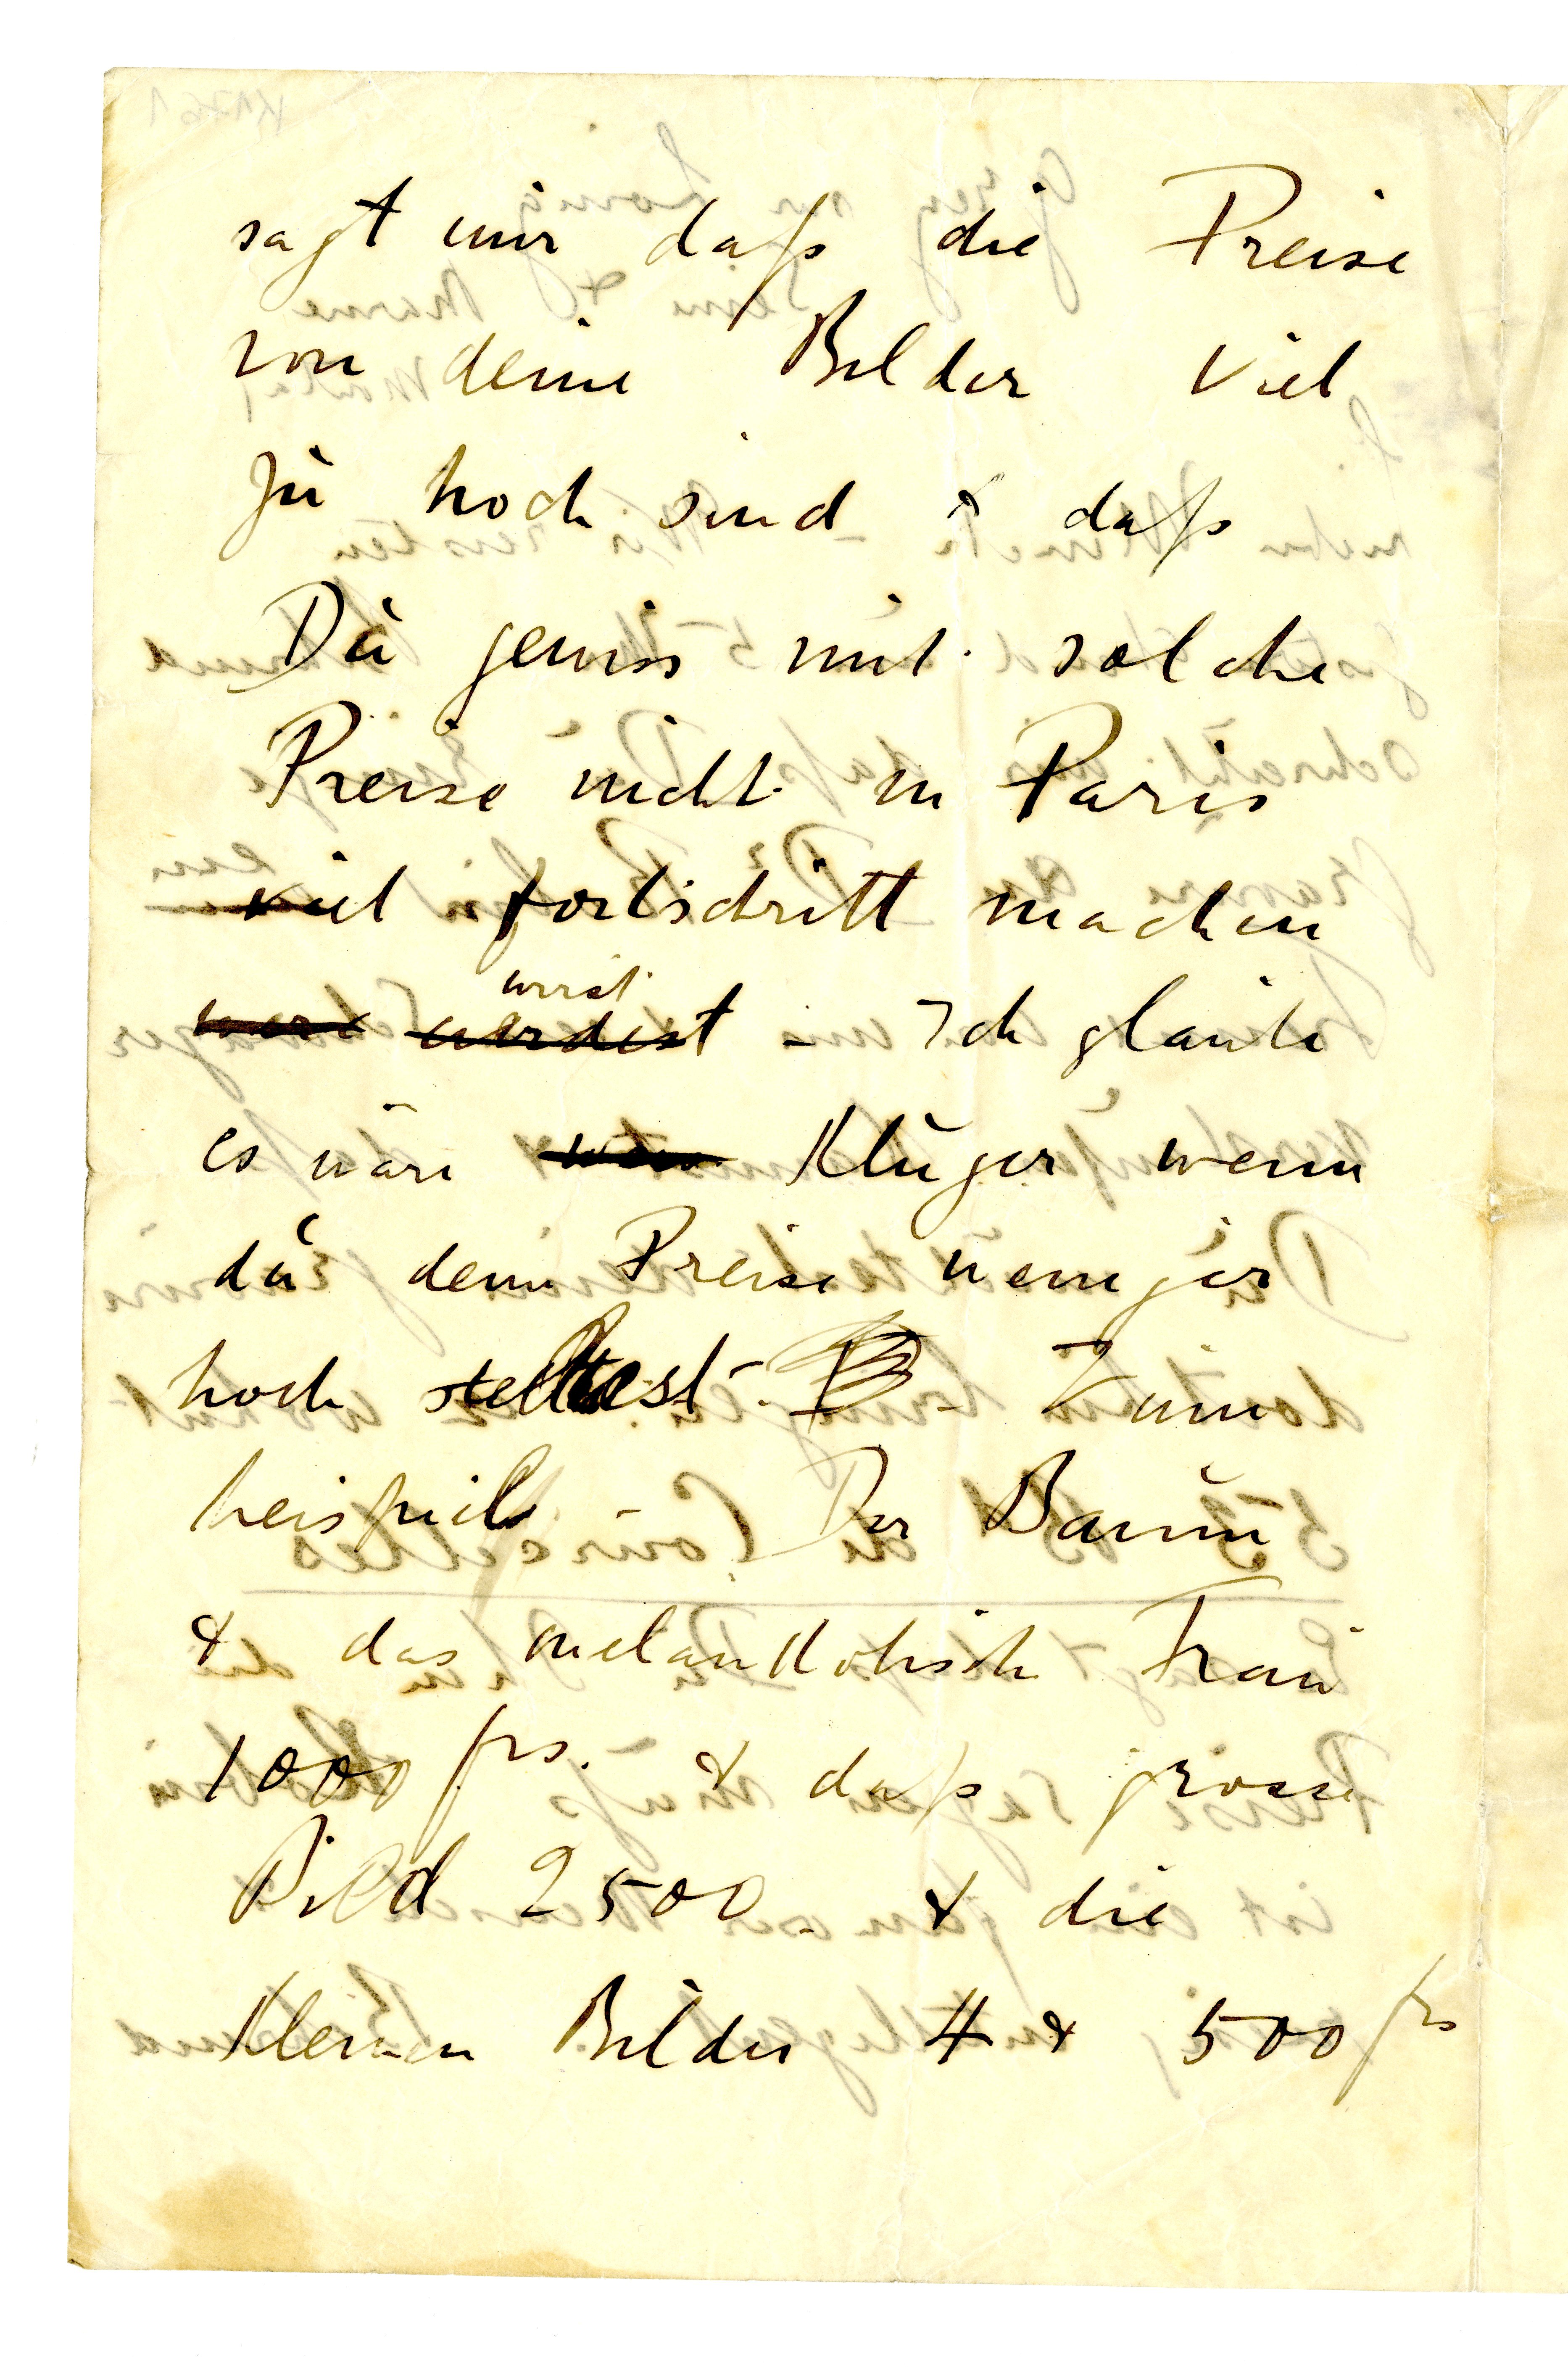 sagt mir daß die Preise
von deine Bilder viel
zu hoch sind & daß
Du gewiss mit solche
Preise nicht in Paris
viel fortschritt machen
wirst
wurdest – Ich glaube
es wäre kluger wenn
du dein Preise weniger
hoch stelltest – Zum
beispiel – Der Baum
& das melankolische Frau
1000 frs. & daß grosse
Bild 2500 & die
kleinen Bilder 4 & 500 frs